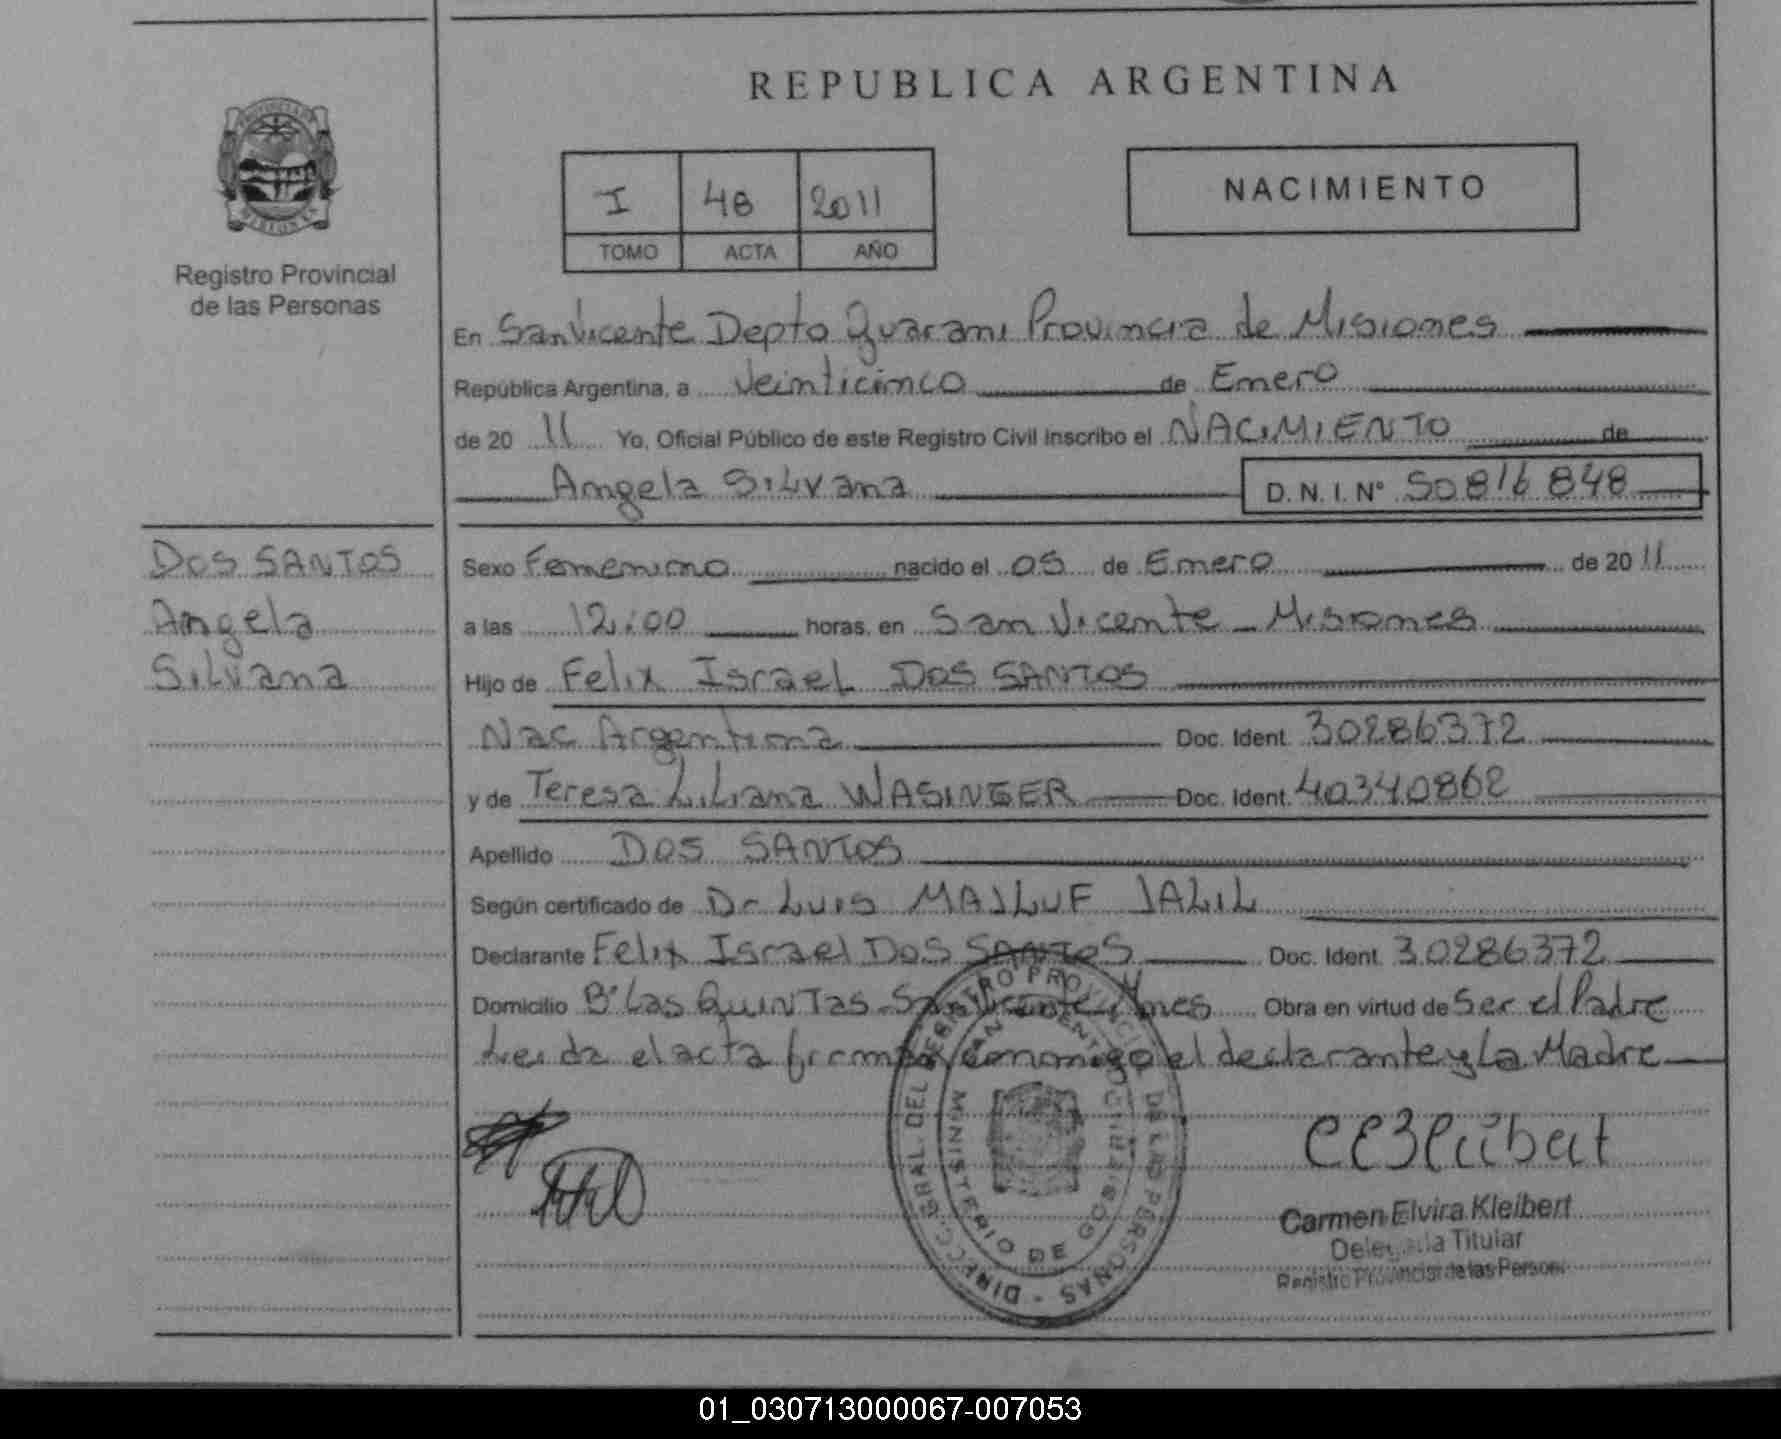 REPUBLICA ARGENTINA
PROVINCIA DE MISIONES
Registro Provincial
de las Personas
I 48 2011
TOMO ACTA AÑO
NACIMIENTO
En San Vicente Depto Guarani Provincia de Misiones
República Argentina, a Veinticinco de Enero
de 20 11 Yo, Oficial Público de este Registro Civil inscribo el NACIMIENTO de
Angela Silvana D. N. I. N° 50816848
DOS SANTOS
Angela
Silvana
Sexo Femenino nacido el 05 de Enero de 20 11
a las 12:00 horas, en San Vicente - Misiones
Hijo de Felix Israel DOS SANTOS
Nac Argentina Doc. Ident. 30286372
y de Teresa Liliana WASINGER Doc. Ident. 40340862
Apellido DOS SANTOS
Según certificado de Dr Luis MAJLUF JALIL
Declarante Felix Israel DOS SANTOS Doc. Ident. 30286372
Domicilio B° Las QUINTAS - San Vicente Mnes Obra en virtud de Ser el Padre
Leida el acta firman conmigo el declarante y La Madre
DIREC. GRAL. DEL REGISTRO PROVINCIAL DE LAS PERSONAS -
MINISTERIO DE GOB
SAN VICENTE
Carmen Elvira Kleibert
Delegada Titular
Registro Provincial de las Person
01_030713000067-007053